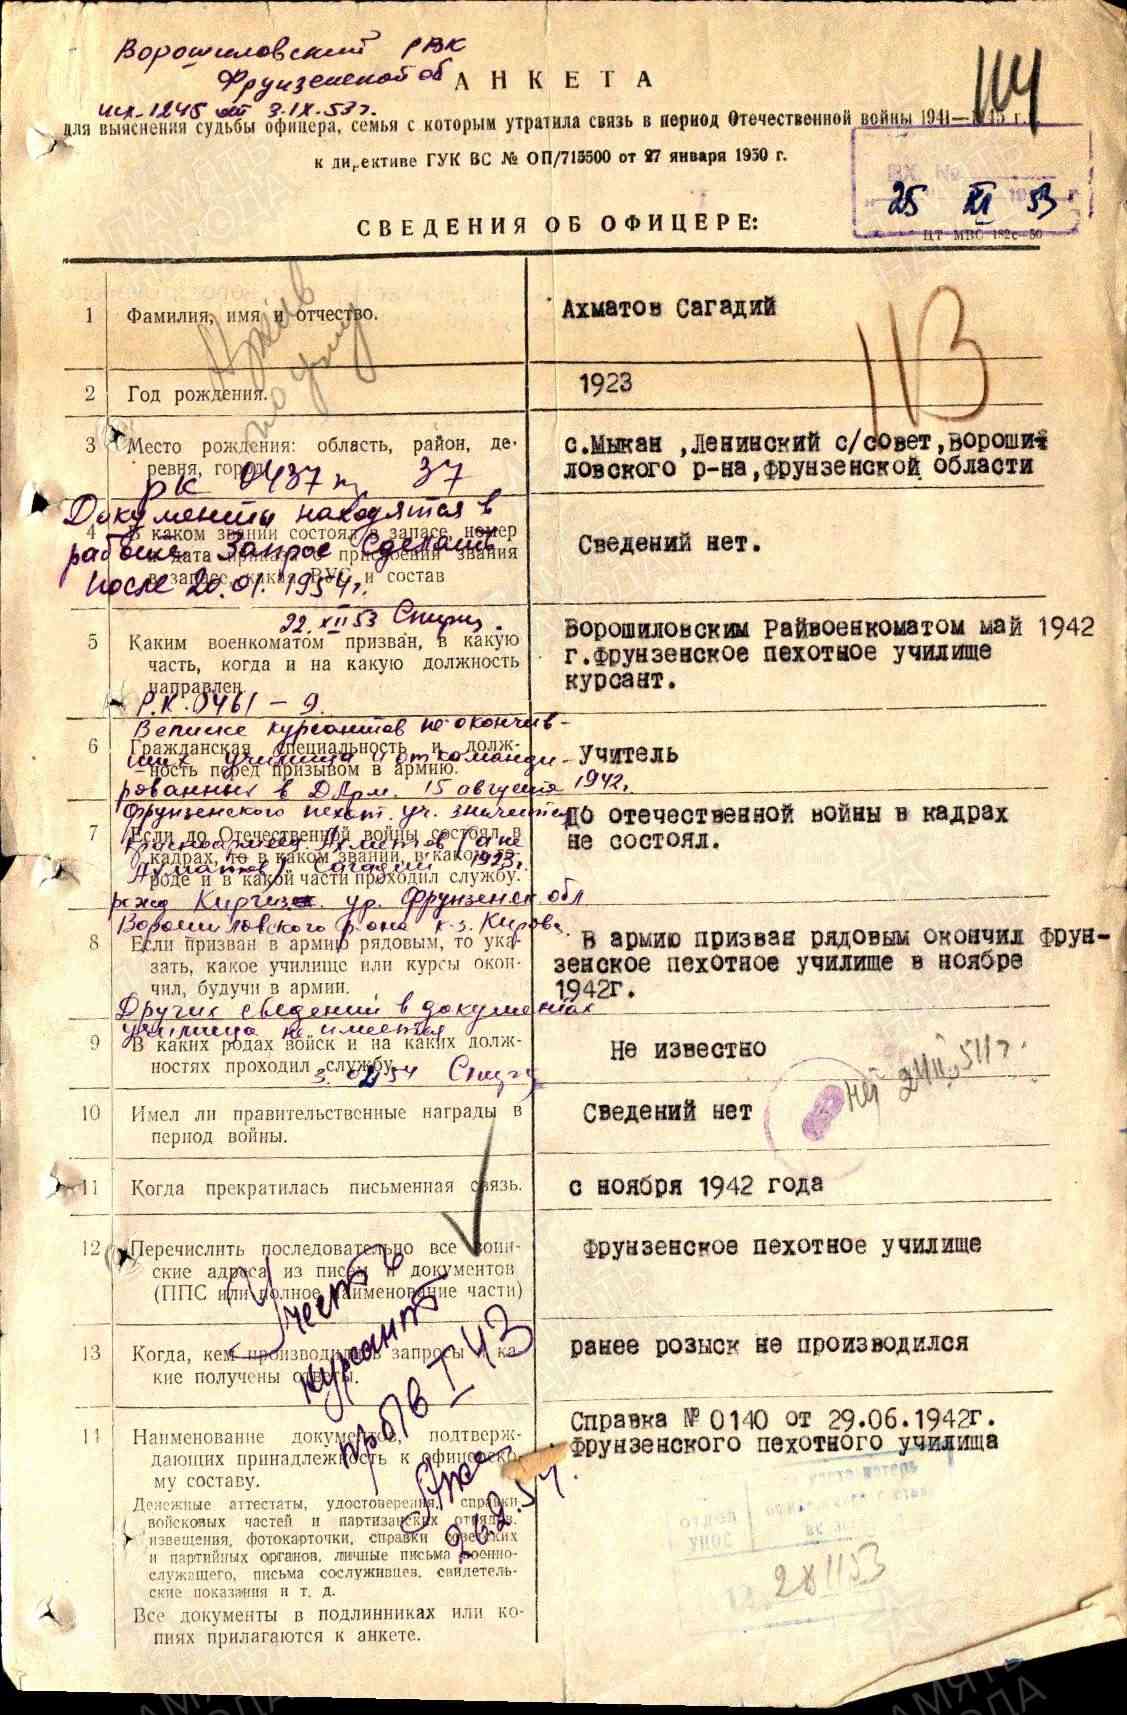 Ворошиловский РВК
Фрунзенской об
исх-1245 от 3.IX.53г.
АНКЕТА
114
для выяснения судьбы офицера, семья с которым утратила связь в период Отечественной войны 1941—1945 г.
к директиве ГУК ВС № ОП/715500 от 27 января 1950 г.
ВХ. №
25 XI 53
СВЕДЕНИЯ ОБ ОФИЦЕРЕ:
ЦТ МВС 182с—50
113
1 Фамилия, имя и отчество. Ахматов Сагадий
2 Год рождения. 1923
3 Место рождения: область, район, де-
ревня, город.
с.Мыкан ,Ленинский с/совет,вороши-
ловского р-на,фрунзенской области
РК 0437 37
Документы находятся в
работе. Запрос сделать
после 20.01.1954г.
22.XII 53
4 В каком звании состоял в запасе, номер
и дата приказа о присвоении звания
в запасе, какая ВУС и состав
Сведений нет.
5 Каким военкоматом призван, в какую
часть, когда и на какую должность
направлен.
Ворошиловским Райвоенкоматом май 1942
г.Фрунзенское пехотное училище
курсант.
Р.К. 0461 – 9.
В списке курсантов не окончив-
ших училища и откоманди-
рованных в Д Арм. 15 августа 1942г.
Фрунзенского пехот. уч. значится
красноармеец Ахметов (а не
Ахматов) Сагадий 1923г.
рожд Киргиз ур. Фрунзенск обл
Ворошиловского р-она к-з. Кирова.
Других сведений в документах
училища не имеется
3.02.54
6 Гражданская специальность и долж-
ность перед призывом в армию.
Учитель
7 Если до Отечественной войны состоял в
кадрах, то в каком звании, в каком го-
роде и в какой части проходил службу.
до отечественной войны в кадрах
не состоял.
8 Если призван в армию рядовым, то ука-
зать, какое училище или курсы окон-
чил, будучи в армии.
В армию призван рядовым окончил фрун-
зенское пехотное училище в ноябре
1942г.
9 В каких родах войск и на каких долж-
ностях проходил службу.
Не известно
10 Имел ли правительственные награды в
период войны.
Сведений нет
11 Когда прекратилась письменная связь. с ноября 1942 года
12 Перечислить последовательно все воин-
ские адреса из писем и документов
(ППС или полное наименование части)
фрунзенское пехотное училище
13 Когда, кем производились запросы и ка-
кие получены ответы.
ранее розыск не производился
Учесть
курсант
пр б/в I 43
26.2.54.
14 Наименование документов, подтверж-
дающих принадлежность к офицерско-
му составу.
Справка № 0140 от 29.06.1942г.
фрунзенского пехотного училища
Денежные аттестаты, удостоверения, справки
войсковых частей и партизанских отрядов,
извещения, фотокарточки, справки советских
и партийных органов, личные письма военно-
служащего, письма сослуживцев, свидетель-
ские показания и т. д.
Все документы в подлинниках или ко-
пиях прилагаются к анкете.
отдел